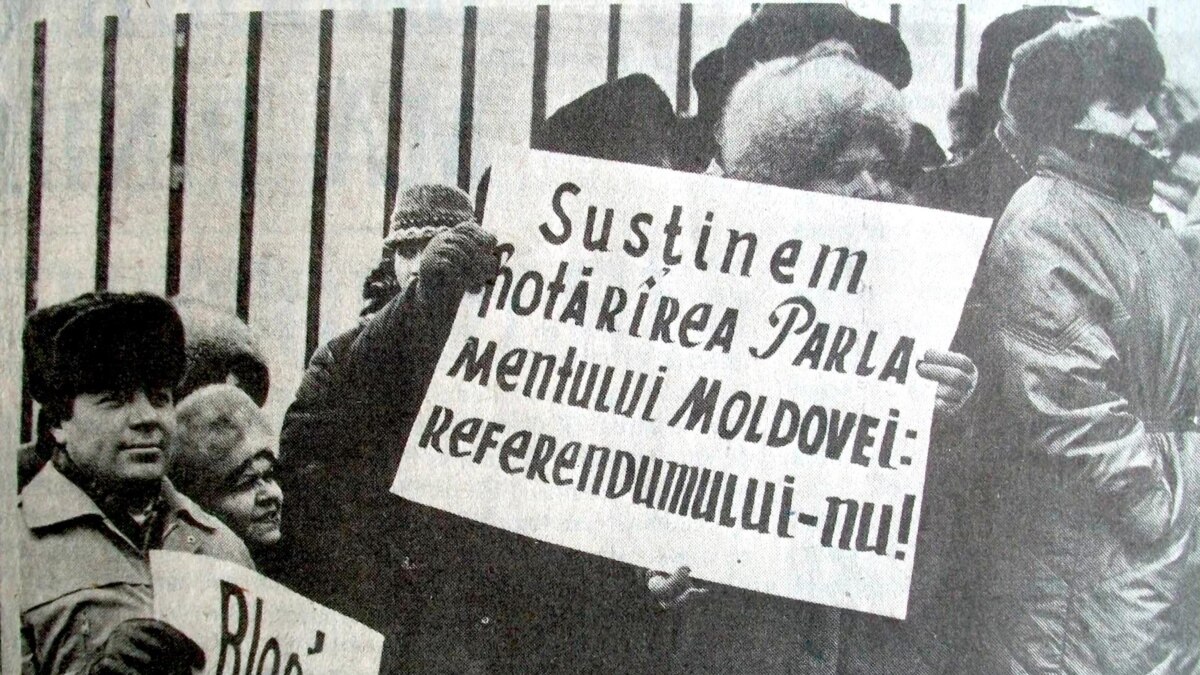 Susţinem
hotărîrea Parla-
mentului Moldovei:
referendumului-nu!